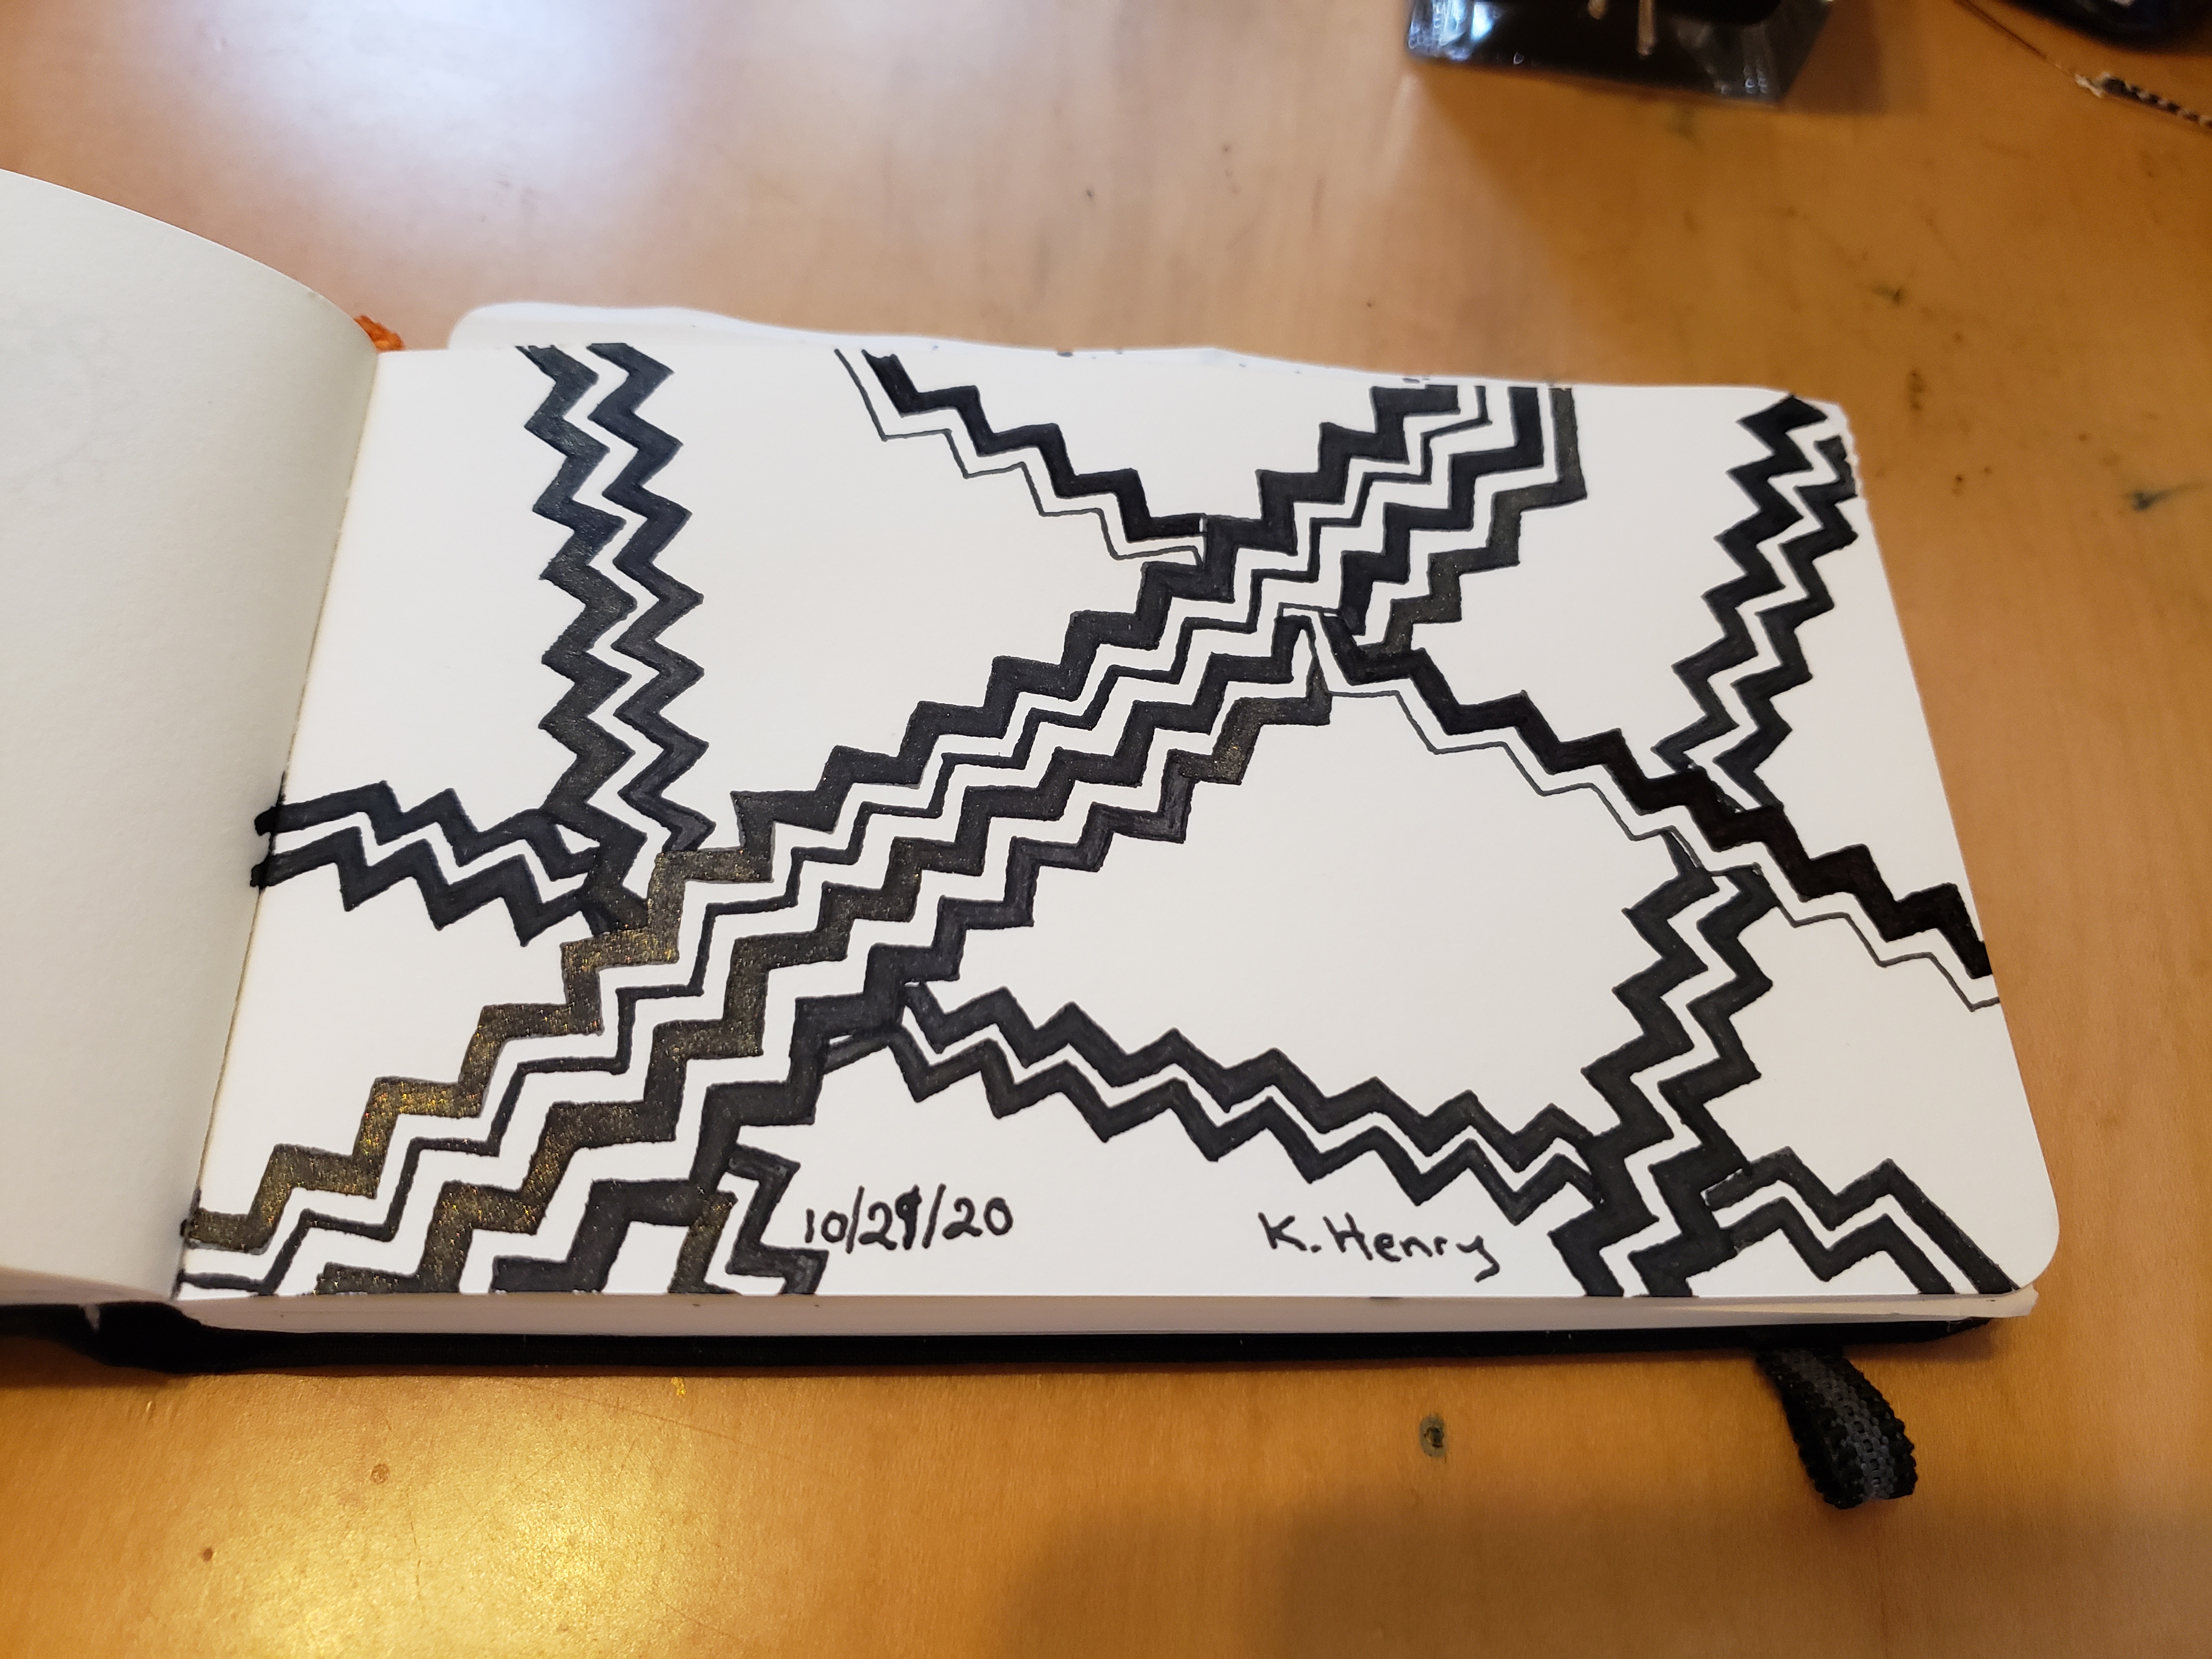 10/29/20
K. Henry